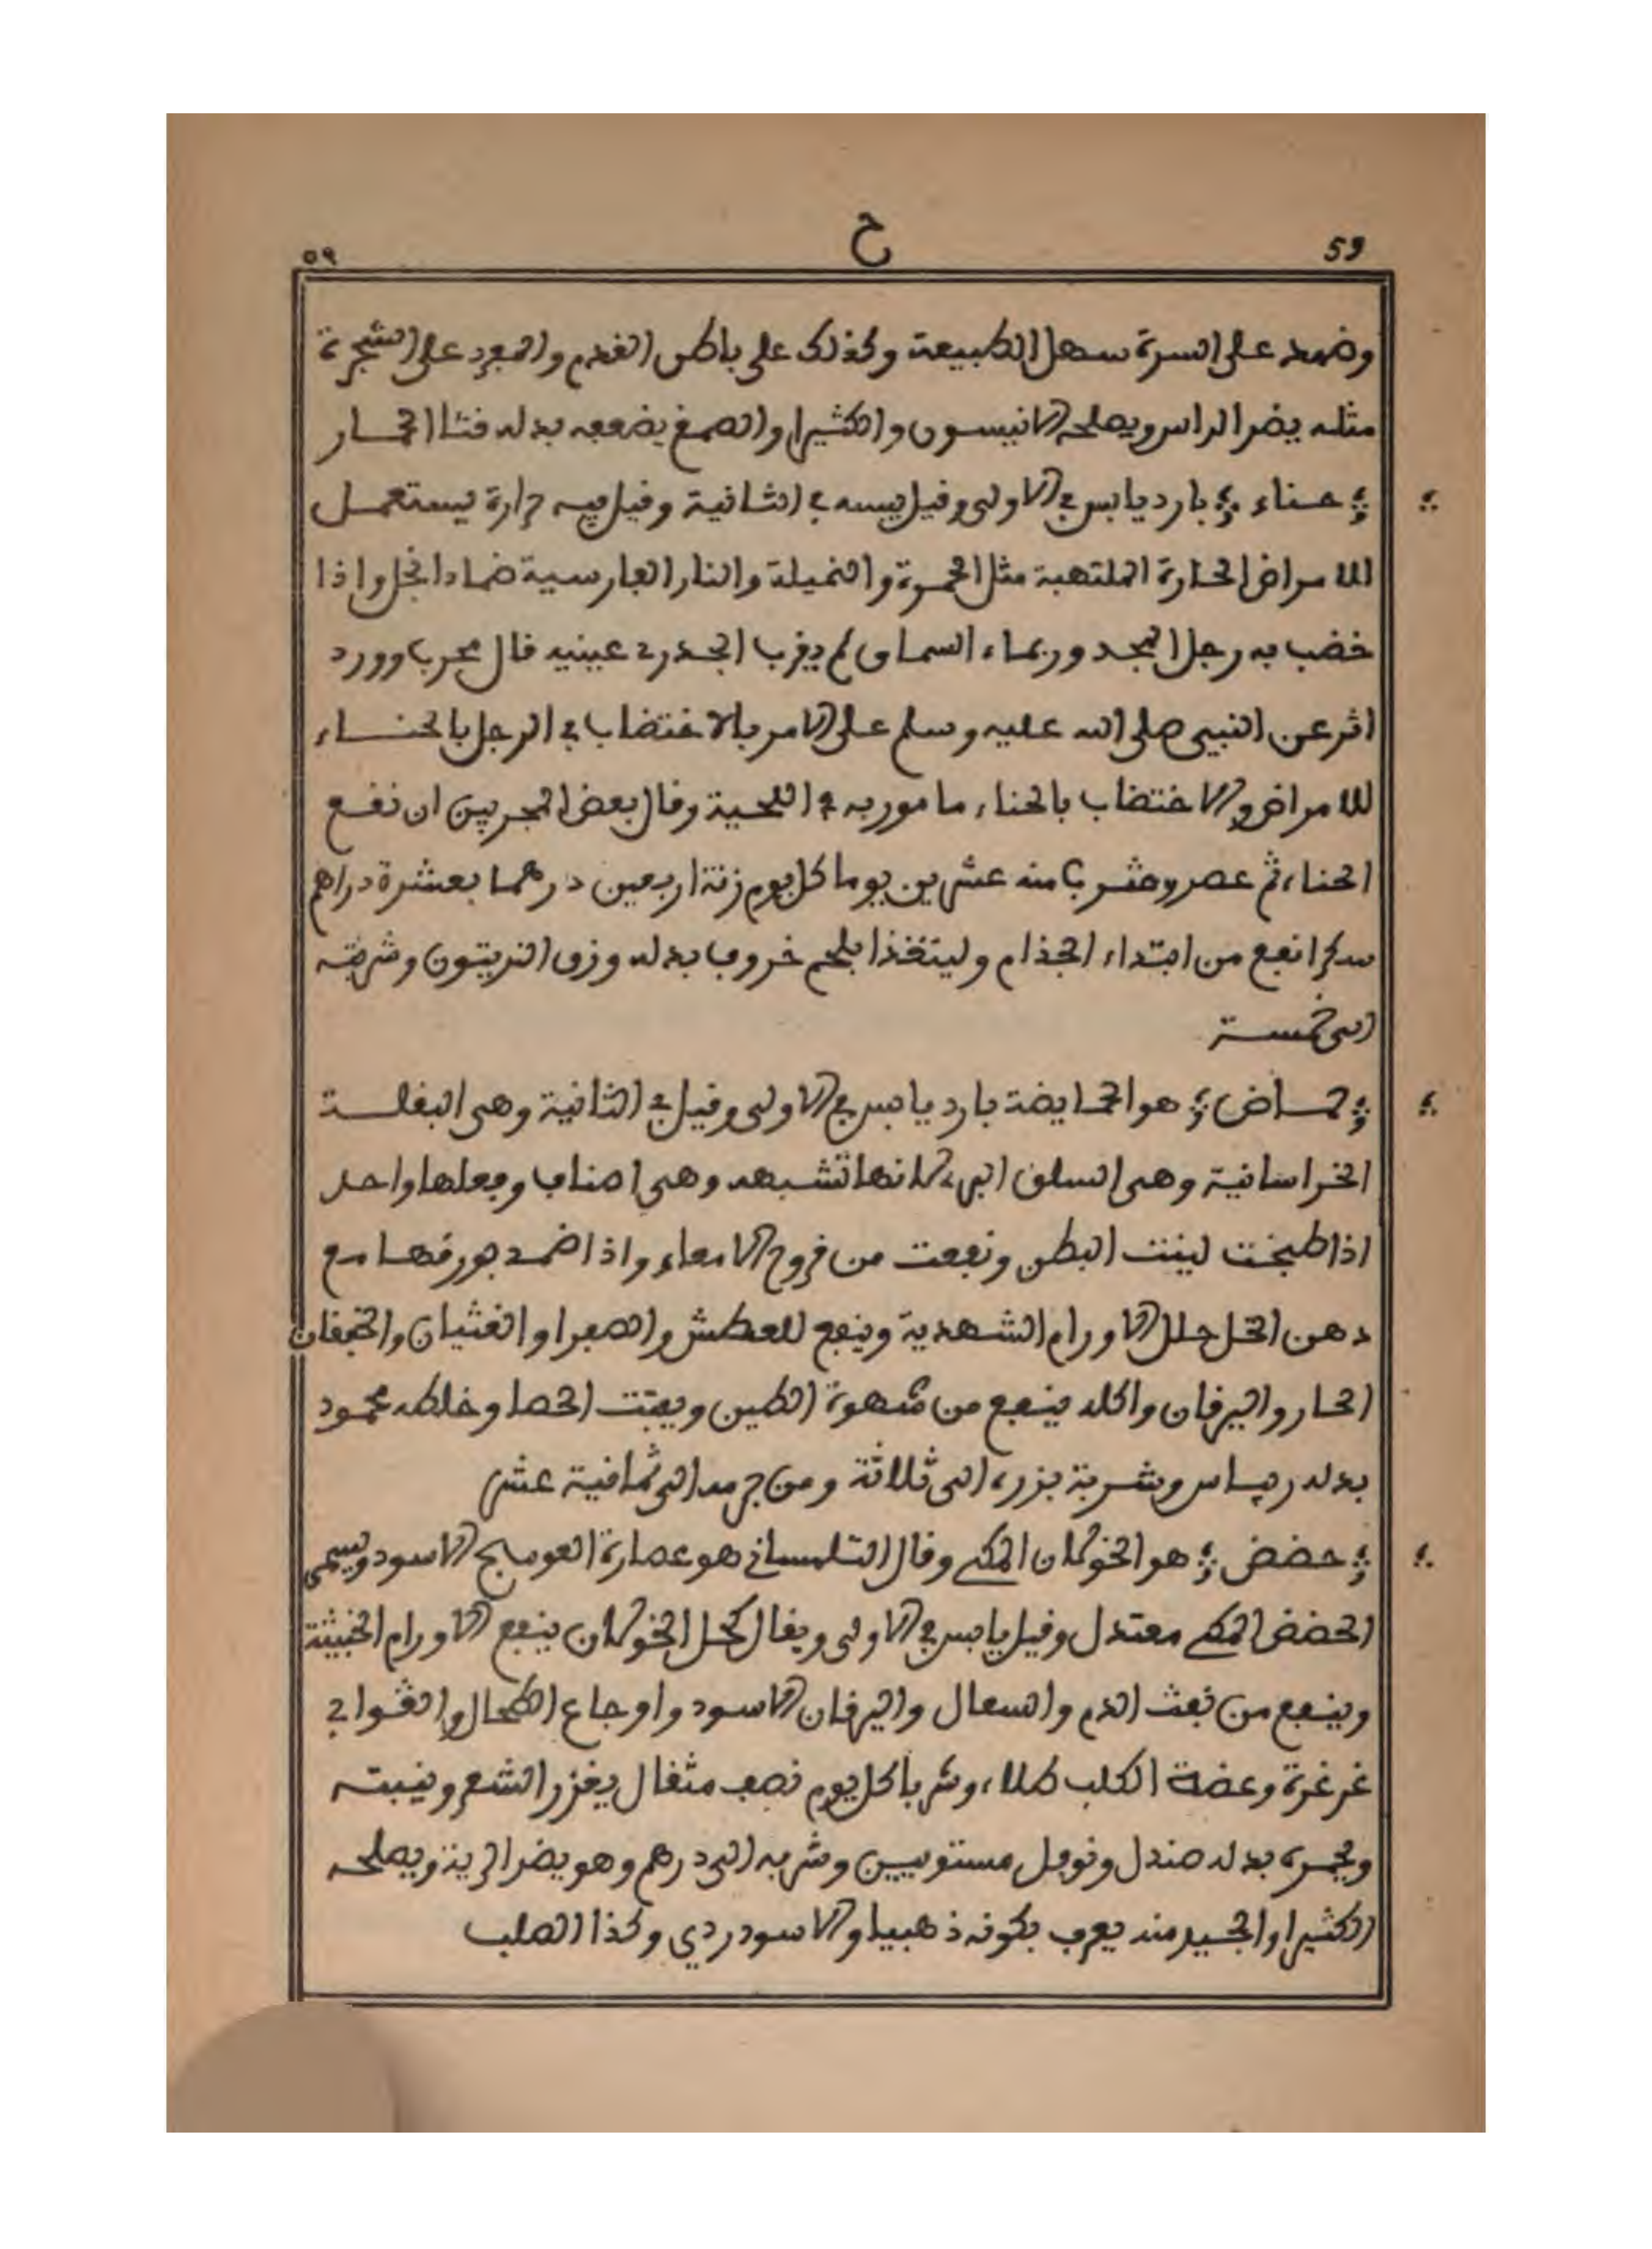 59
ح
٥٩
وضمد على السرة سهل الطبيعة وكذلك على باطن القدم والمعرد على الشجرة
مثله يضر الراس ويصلحه الانيسون والكثيرا والصمغ يضعفه بدله قثا الحمار
حناء بارد يابس في الاولى وقيل يبسه في الثانية وقيل فيه حرارة يستعمل
للامراض الحارة الملتهبة مثل الحمرة والنميلة والنار الفارسية ضمادا بخل واذا
خضب به رجل المجدور بماء السماق لم يقرب الجدري عينيه قال مجرب وورد
اثر عن النبي صلى الله عليه وسلم على الامر بالاختضاب في الرجل بالحناء
للامراض والاختضاب بالحناء مامور به في اللحية وقال بعض المجربين ان نقع
الحناء ثم عصر وشرب منه عشرين يوما كل يوم زنة اربعين درهما بعشرة دراهم
سكرا نفع من ابتداء الجذام وليتغذا بلحم خروف بدله ورق الزيتون وشربته
الى خمسة
حماض هو الحمايضة بارد يابس في الاولى وقيل في الثانية وهى البقلة
الخراسانية وهى السلق البري لانها تشبهه وهى اصناف وفعلها واحد
اذا طبخت لينت البطن ونفعت من قروح الامعاء واذا ضمد بورقها مع
دهن الخل حلل الاورام الشهدية وينفع للعطش والصفرا والغثيان والخفقان
الحار واليرقان واكله ينفع من شهوة الطين ويفتت الحصا وخلطه محمود
بدله ريباس وشربة بزره الى ثلاثة ومن جرمه الى ثمانية عشر
حضض هو الخولان المكي وقال التلمساني هو عصارة العوسج الاسود ويسمى
الحضض المكي معتدل وقيل يابس في الاولى ويقال كحل الخولان ينفع الاورام الخبيثة
وينفع من نفث الدم والسعال واليرقان الاسود واوجاع الطحال والقوابي
غرغرة وعضة الكلب طلاء وشربا كل يوم نصف مثقال يغزر الشعر وينبته
ويحمره بدله صندل وفوفل مستويين وشربه الى درهم وهو يضر الرية ويصلحه
الكثيرا والجيد منه يعرف بكونه ذهبيا والاسود ردي وكذا الصلب